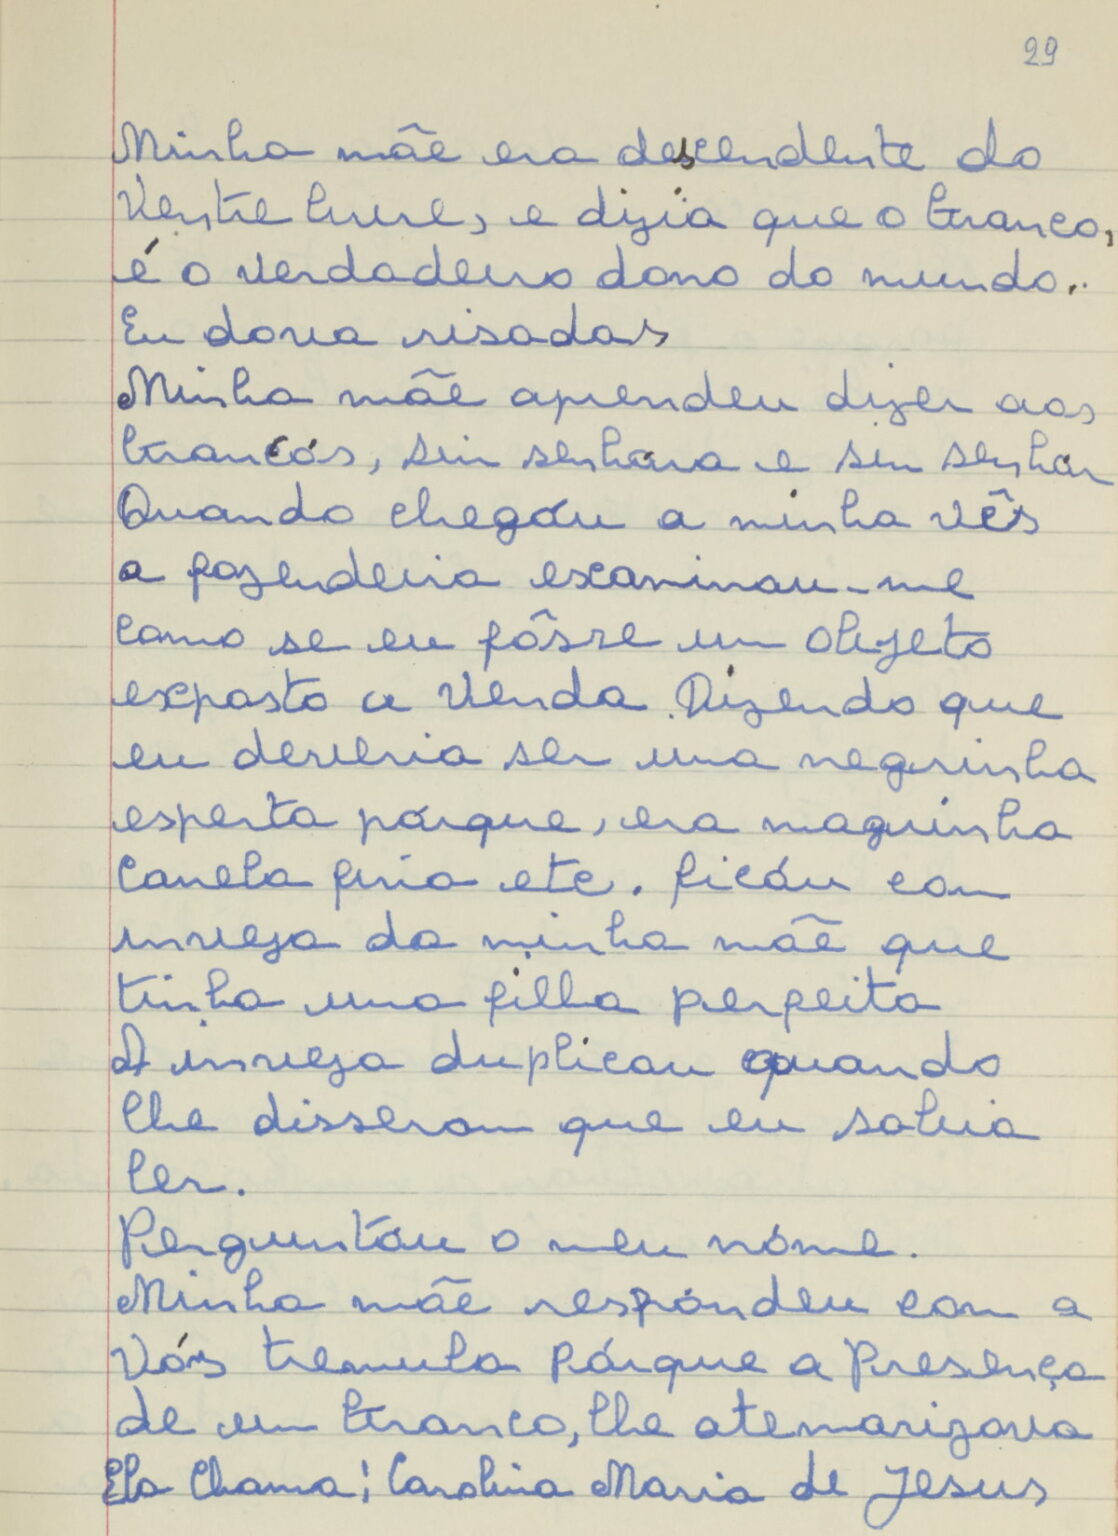 29
Minha mãe era descendente do
Ventre livre, e dizia que o branco,
é o verdadeiro dono do mundo..
Eu dava risadas
Minha mãe aprendeu dizer aos
brancós, sim senhóra e sim senhór
Quando chegóu a minha vês
a fazendeira examinou-me
como se eu fôsse um objeto
exposto a venda. Dizendo que
eu deveria ser uma negrinha
esperta pórque, era magrinha
canela fina etc. ficóu com
inveja da minha mãe que
tinha uma filha perfeita
A inveja duplicou quando
lhe disseram que eu sabia
ler.
Perguntóu o meu nóme.
Minha mãe respóndeu com a
Vós tremula pórque a presença
de um branco, lhe atemorizava
Ela Chama; Carolina Maria de Jesus